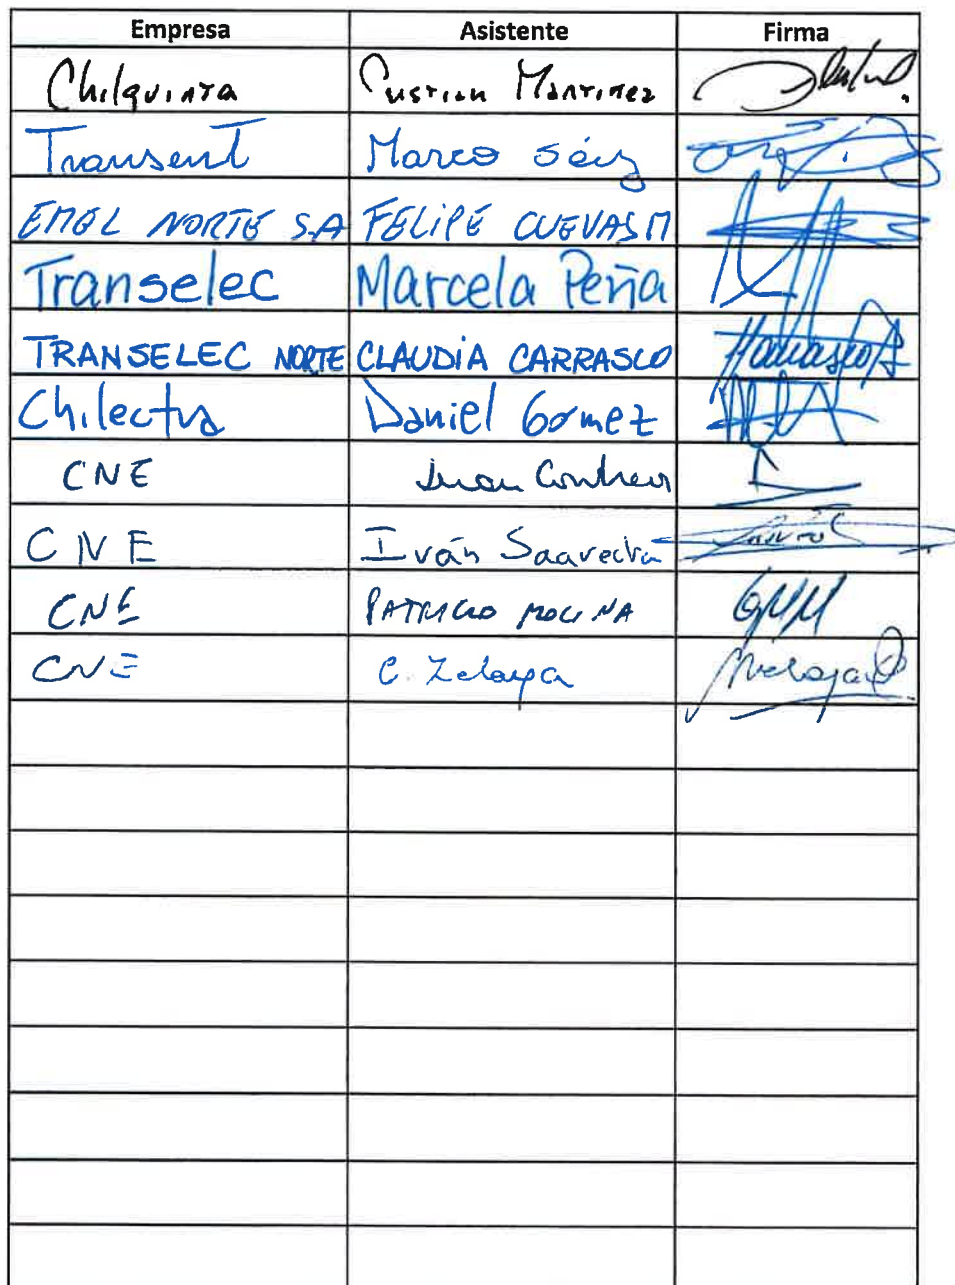 Empresa Asistente Firma
Chilquinta Cristian Martinez
Transent Marco Sáez
EMEL NORTE S.A FELIPE CUEVAS M
Transelec Marcela Peña
TRANSELEC NORTE CLAUDIA CARRASCO
Chilectra Daniel Gomez
CNE Juan
CNE Iván Saavedra
CNE PATRICIO MOLINA
CNE C. Zelaya